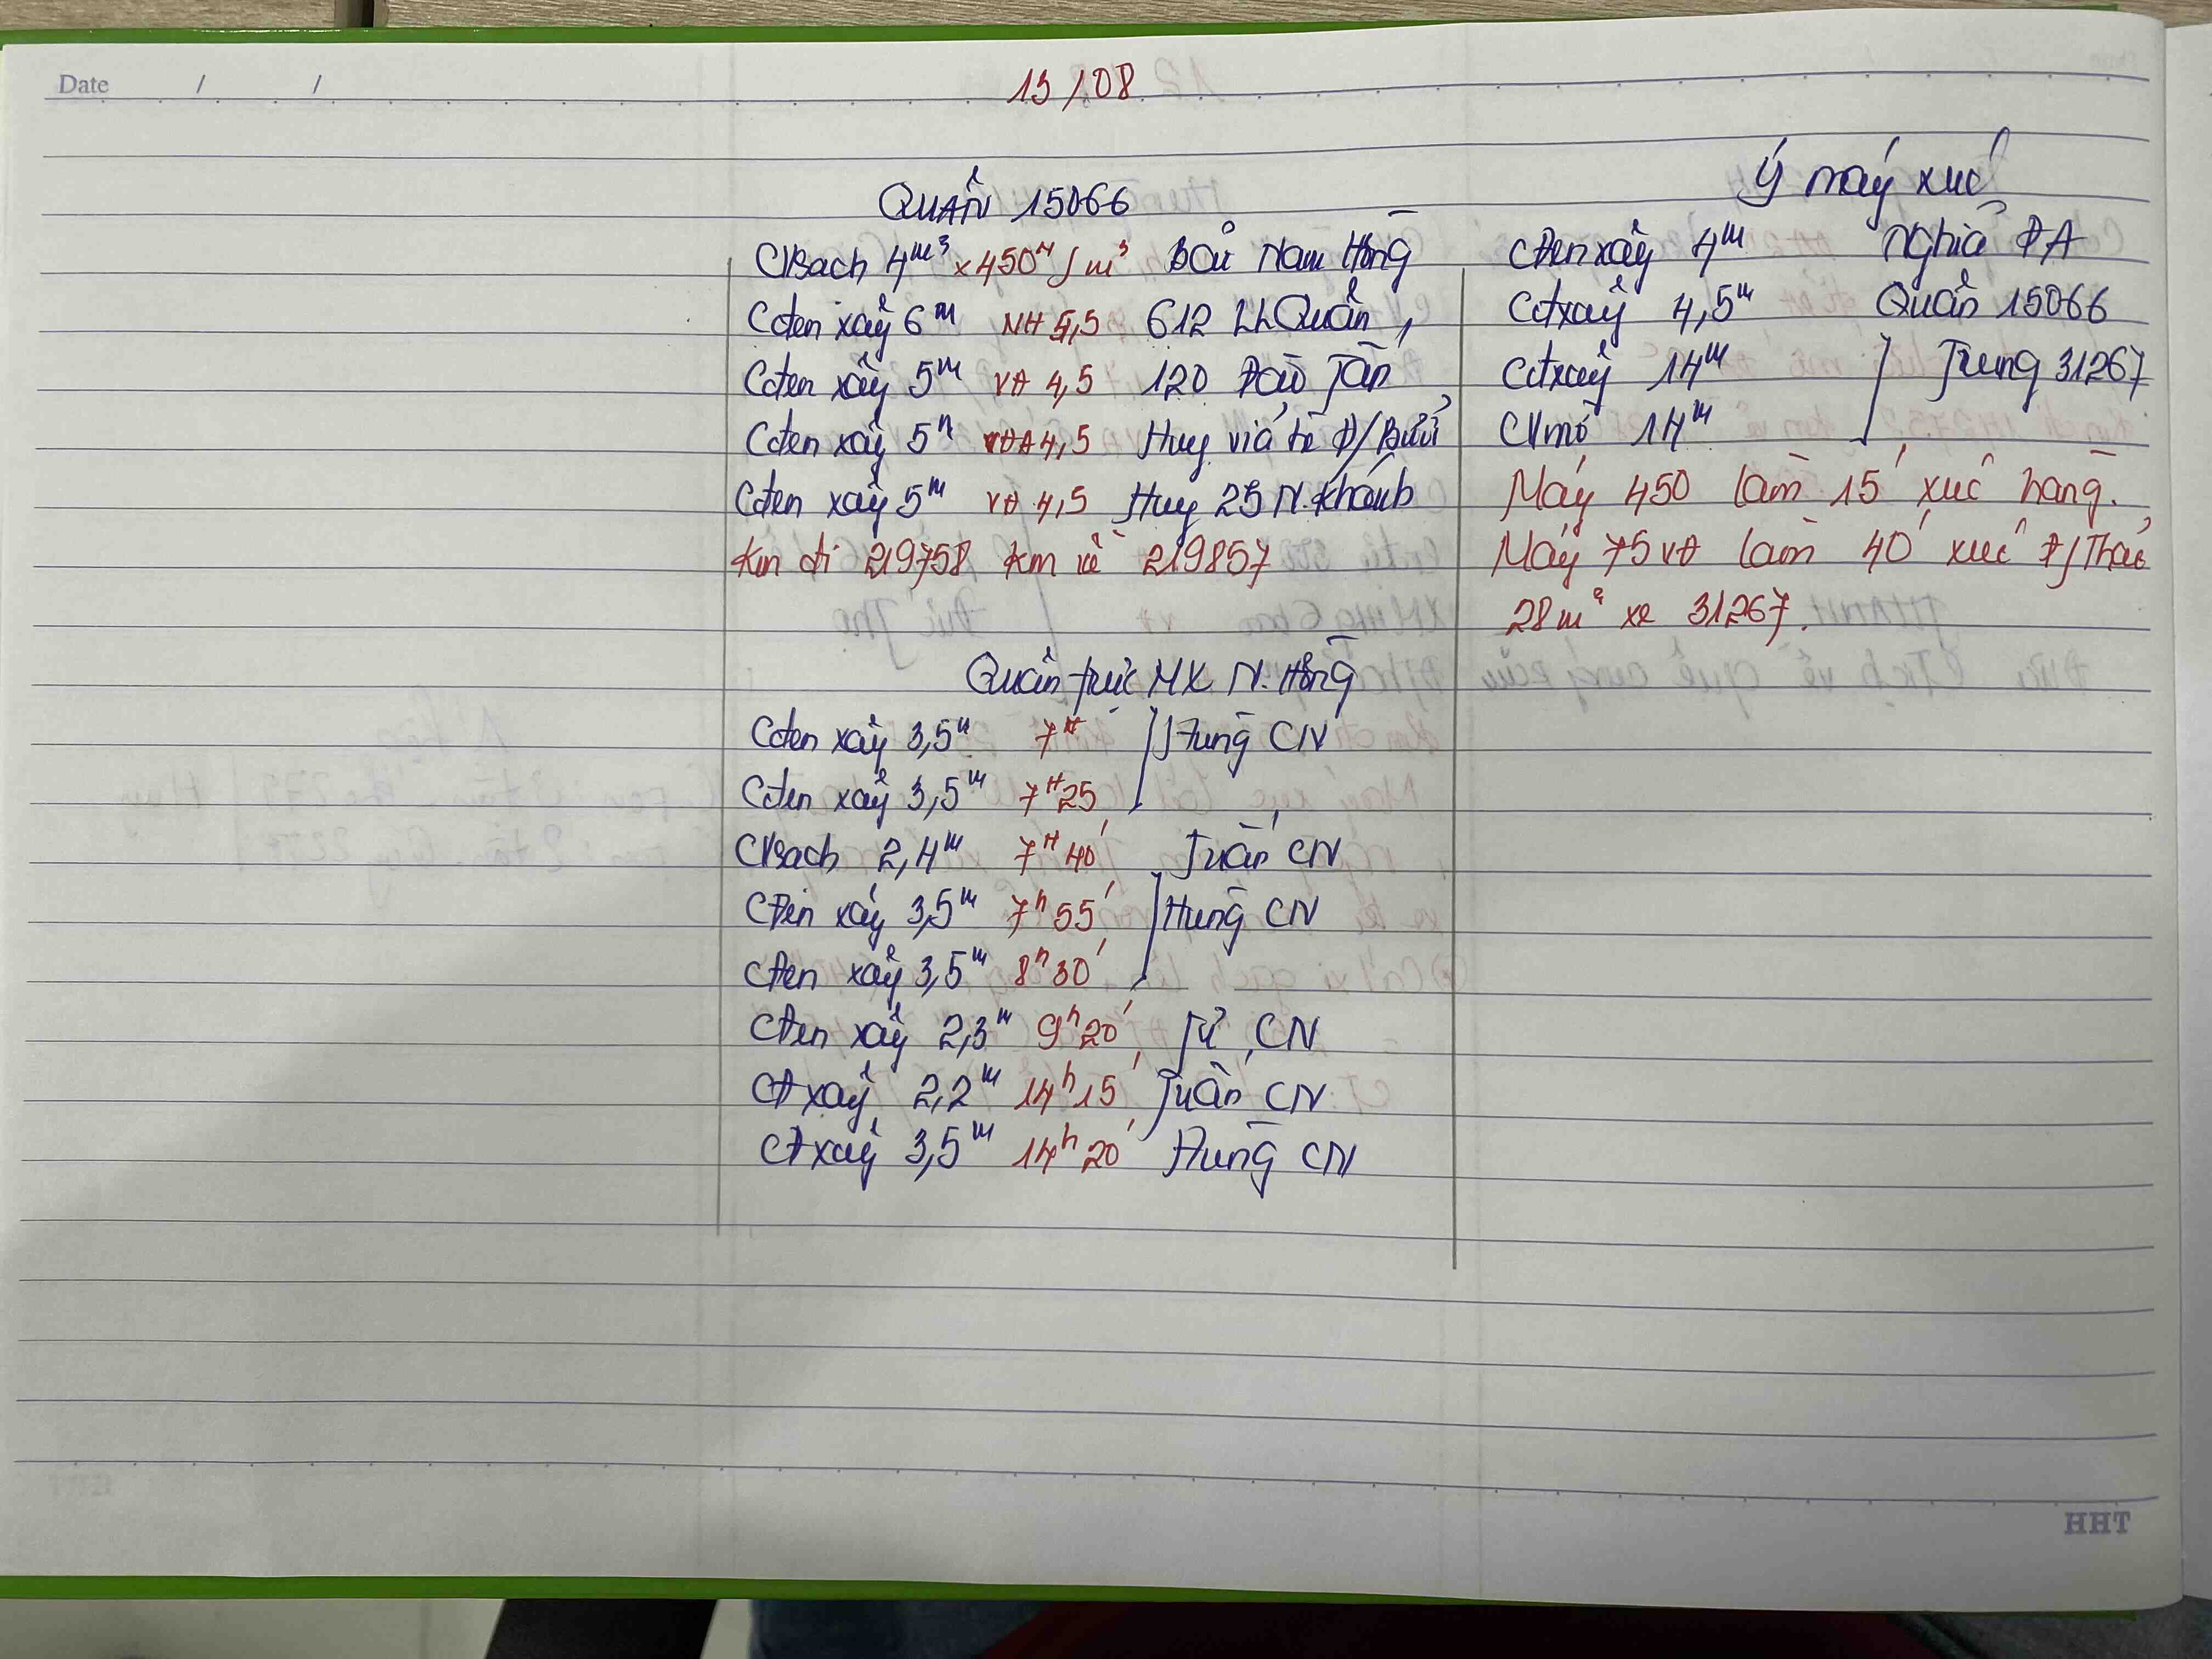 Date / /
13/08
QUÂN 15066
CVBach 4m³ x 450N/m³ Bãi Nam Hồng
Cđen xây 6m NH 5,5 612 LLQuân
Cđen xây 5m VĐ 4,5 120 Đào Tấn
Cđen xây 5m VĐA 4,5 Huy vỉa hè Đ/Bưởi
Cđen xây 5m VĐ 4,5 Huy 25 N.Khánh
Km đi 219758 Km về 219857
Quân trực MX N.Hồng
Cđen xây 3,5m 7H Hùng CN
Cđen xây 3,5m 7H25
CVBach 2,4m 7H40' Tuấn CN
CĐen xây 3,5m 7h55' Hùng CN
CĐen xây 3,5m 8h30'
CĐen xây 2,3m 9h20' Tứ CN
CĐ xây 2,2m 14h15' Tuấn CN
CĐ xây 3,5m 14h20' Hùng CN
Ý máy xúc
CĐen xây 4m Nghĩa ĐA
CĐ xây 4,5m Quân 15066
CĐ xây 14m Trung 31267
CV mó 14m
Máy 450 làm 15' xúc hàng.
Máy 75 VĐ làm 40' xúc Đ/Thải
28m³ xe 31267.
HHT